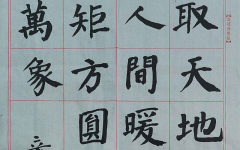 取天地
人間暖
矩方圓
萬象